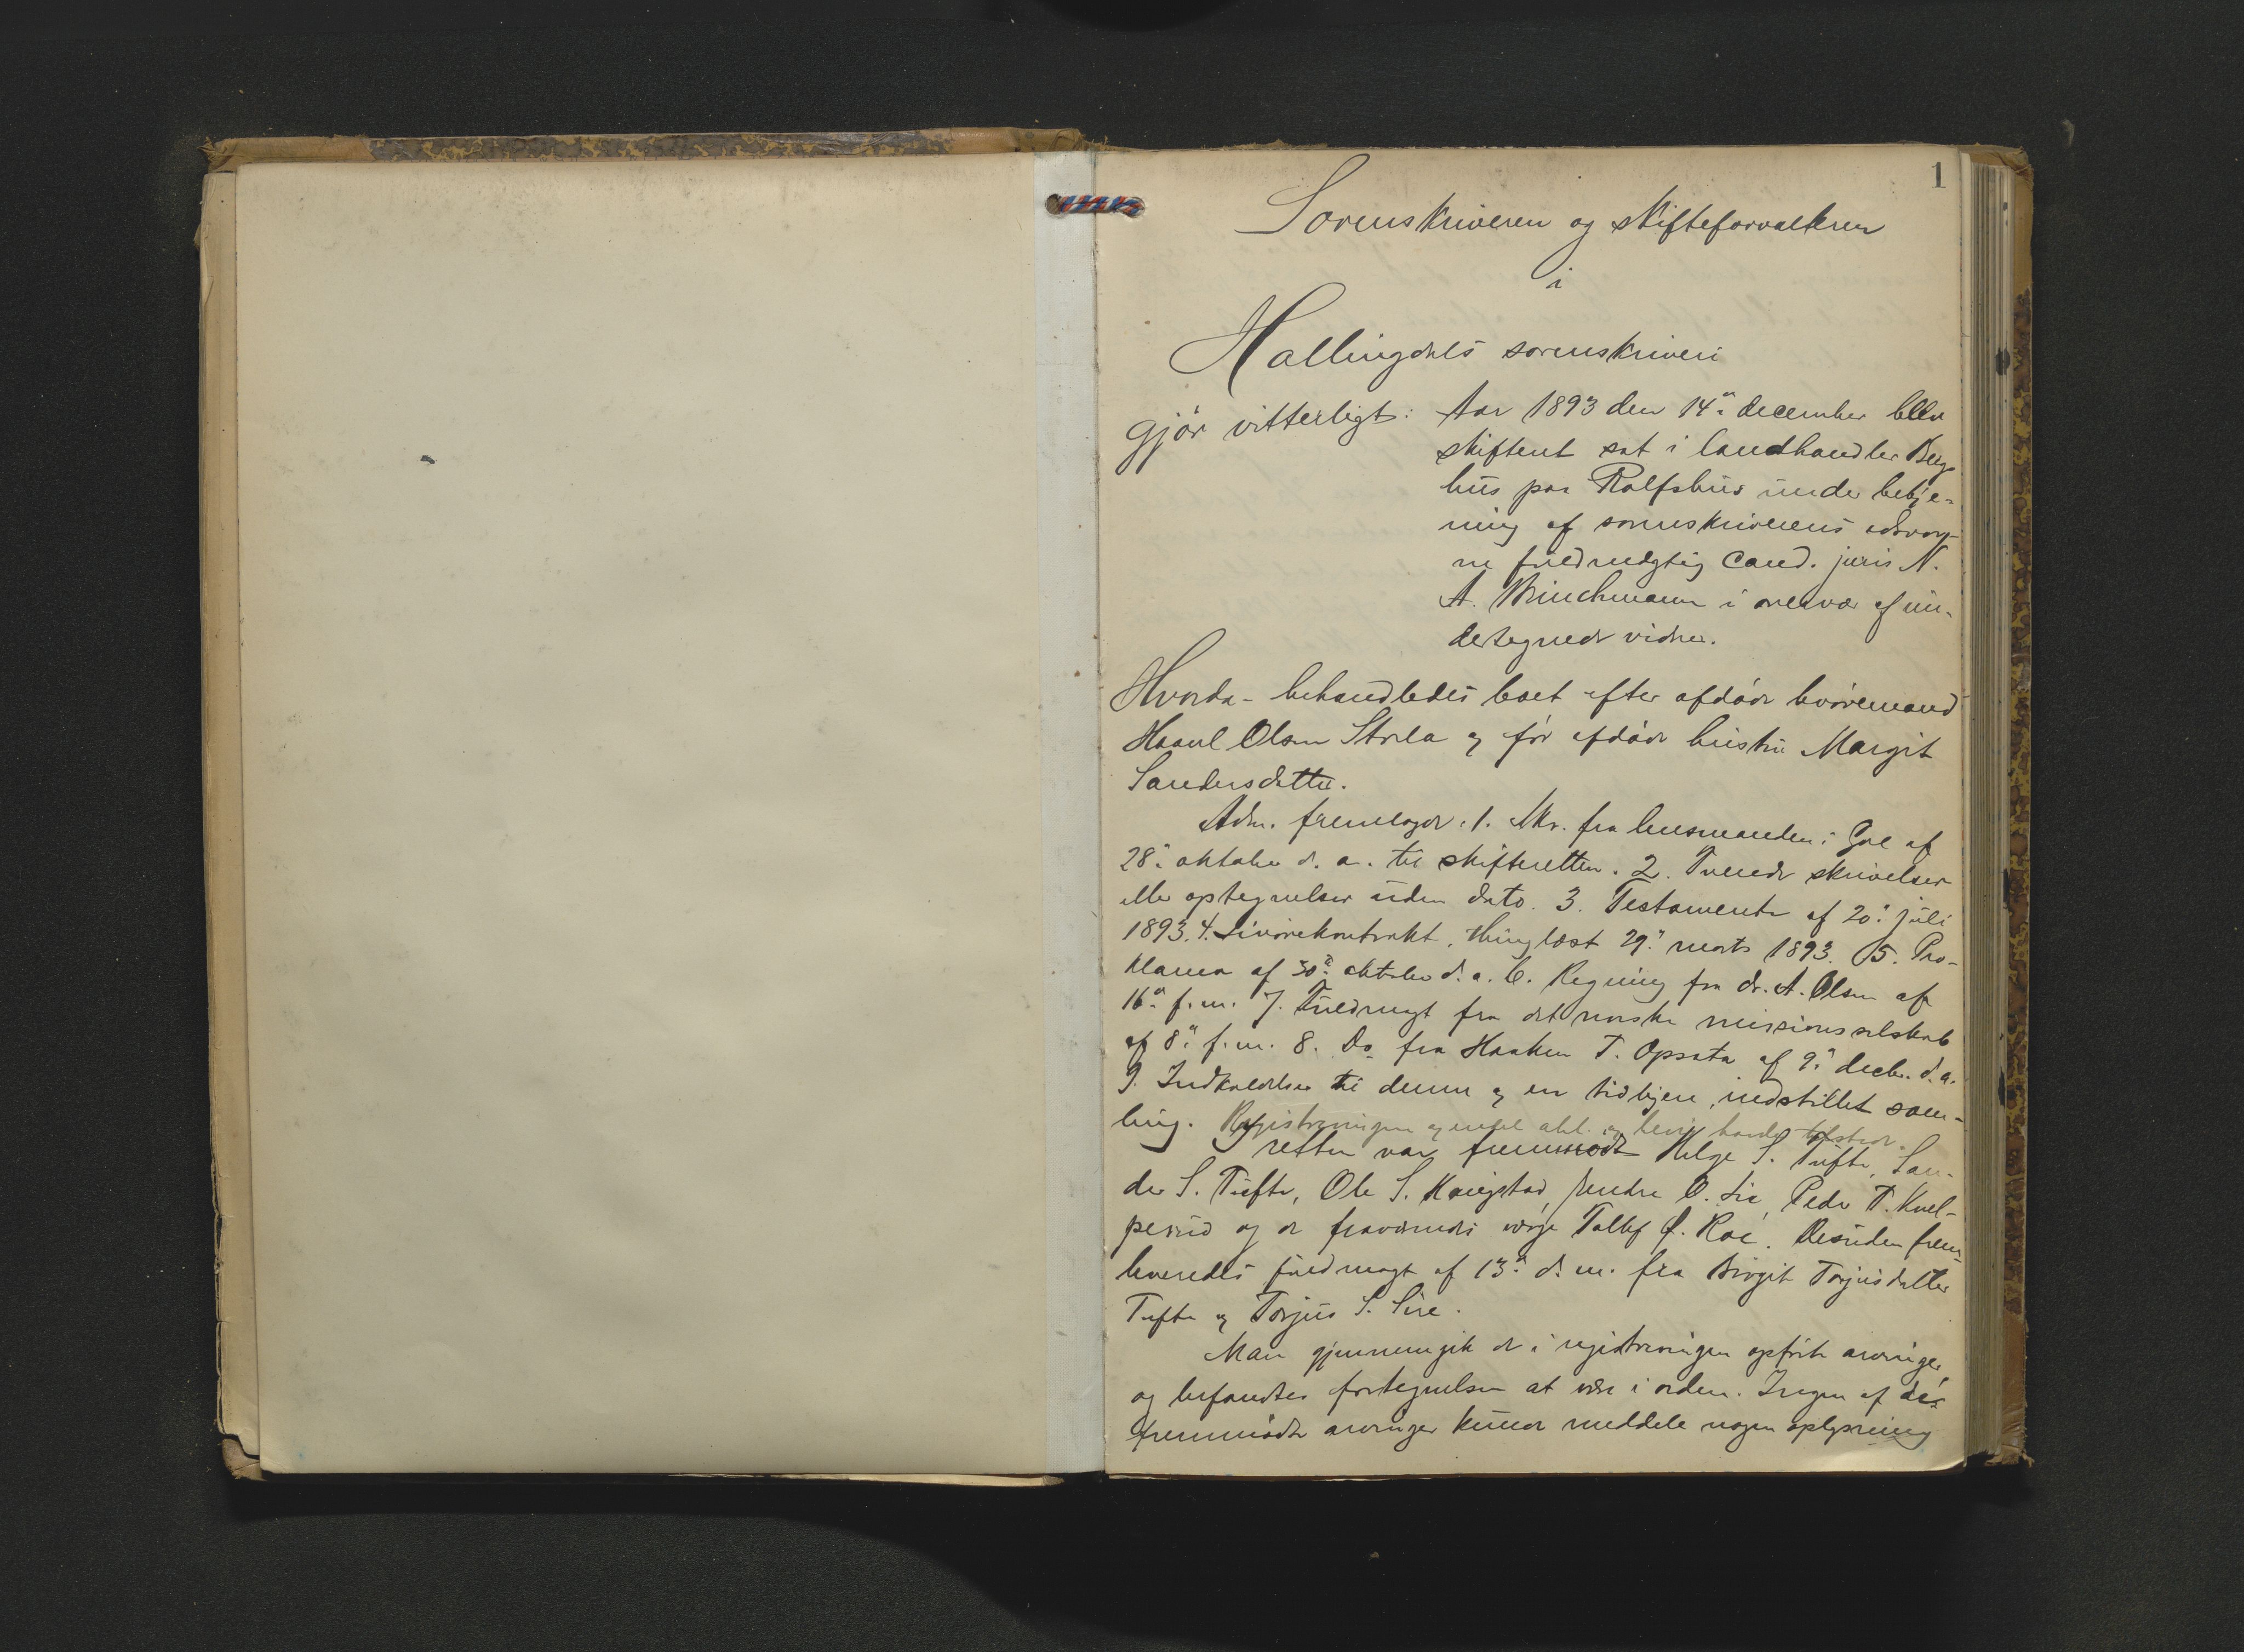 1
Sorenskriveren og skifteforvalteren
i
Hallingdals sorenskriveri
gjør vitterligt: Aar 1893 den 14de december blev
skifteret sat i landhandler Berg
hus paa Rolfshus under betje-
ning af sorenskriverens edsvor-
ne fuldmægtig Cand. juris N.
A. Brinchmann i overvær af un-
dertegnede vidner.
Hvorda- behandledes boet efter afdøde kaarmand
Olsen og før afdøde hustru Margit
Sandersdatter.
Adm. fremlagde: 1. Skr. fra lensmanden i Gol af
28de oktober d. a. til skifteretten. 2. Tvende skrivelser
eller optegnelser uden dato. 3. Testamente af 20de juli
1893. 4. Livørekontrakt, thinglæst 29de marts 1893. 5. Pro-
klama af 30te oktober d. a. 6. Regning fra dr. A. Olsen af
16de f. m. 7. Fuldmagt fra det norske missionsselskab
af 8de f. m. 8. Do fra Haaken T. Opsata af 9de decbr. d. a.
9. Indkaldelse til denne og en tidligere, indstillet sam-
ling. Registreringen og havde tilstede.
I retten var fremmødt Helge S. Tufte, San-
der S. Tufte, Ole S. Kaugstad, Endre O. Lie, Peder T. Kvel-
prud og de fraværendes værge Tollef O. Roe. Desuden frem-
leveredes fuldmagt af 13de d. m. fra Birgit Torjusdatter
Tufte og Torjus S. Sire.
Man gjennemgik de i registreringen opførte arvinger
og befandtes fortegnelsen at være i orden. Ingen af de
fremmødte arvinger kunde meddele nogen oplysning